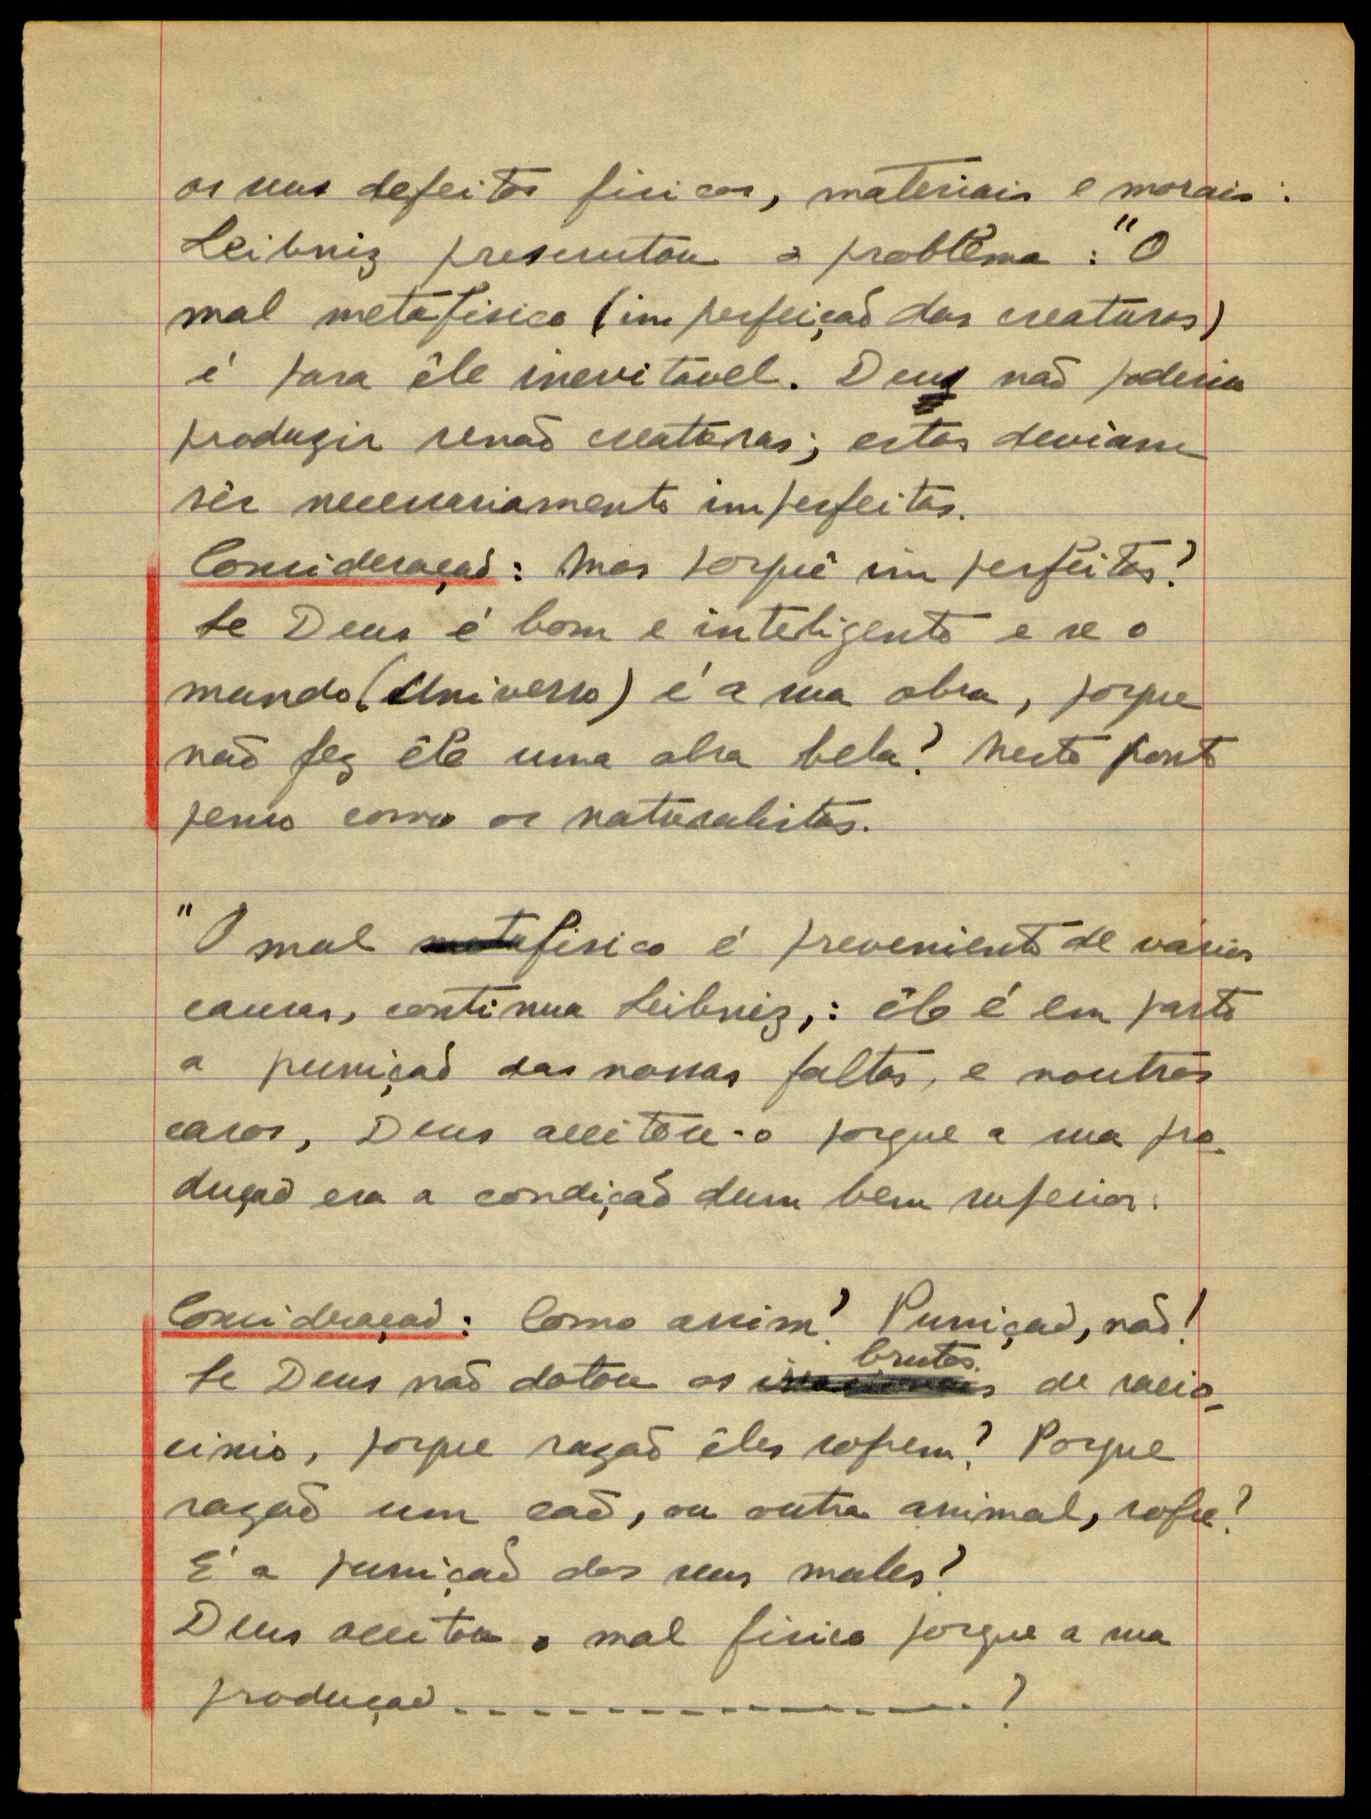 os seus defeitos fisicos, materiais e morais:
Leibniz prescrutou o problêma: "O
mal metafisico (imperfeição das creaturas)
é para êle inevitável. Deus não poderia
produzir senão creaturas; estas deviam
sêr necessariamente imperfeitas.
Consideração: Mas porquê imperfeitas?
Se Deus é bom e inteligente e se o
mundo (Universo) é a sua obra, porque
não fez êle uma obra bela? Neste ponto
penso como os naturalistas.
"O mal fisico é preveniente de varias
causas, continua Leibniz,: êle é em parte
a punição das nossas faltas, e noutros
casos, Deus aceitou-o porque a sua pro-
dução era a condição dum bem superior.
Consideração: Como assim? Punição, não!
brutos.
Se Deus não dotou os de racio-
cinio, porque razão êles sofrem? Porque
razão um cão, ou outro animal, sofre?
É a punição dos seus males?
Deus aceitou o mal fisico porque a sua
produção - - - - - - - - - - - - - - ?